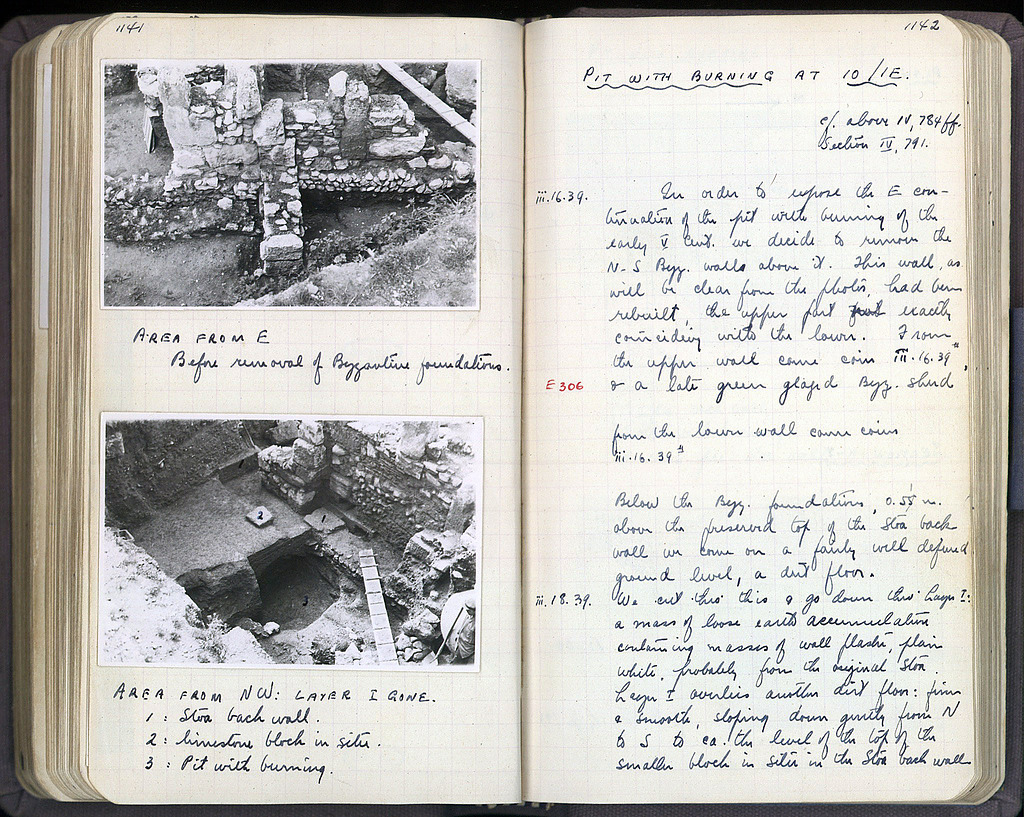 1141
AREA FROM E
Before removal of Byzantine foundations.
2
1
3
AREA FROM NW: LAYER I GONE.
1 : Stoa back wall.
2 : limestone block in situ.
3 : Pit with burning.
1142
PIT WITH BURNING AT 10/IE.
cf. above IV, 784 ff.
Section IV, 791.
iii.16.39. In order to expose the E con-
tinuation of the pit with burning of the
early V cent. we decide to remove the
N-S Byz. walls above it. This wall, as
will be clear from the photos, had been
rebuilt, the upper part exactly
coinciding with the lower. From
the upper wall come coin iii.16.39
E 306 & a late green glazed Byz. sherd
from the lower wall come coins
iii.16.39
Below the Byz. foundations, 0.55 m.
above the preserved top of the Stoa back
wall we come on a fairly well defined
ground level, a dirt floor.
iii.18.39. We cut thro' this & go down thro' Layer I:
a mass of loose earth accumulation
containing masses of wall plaster, plain
white, probably from the original Stoa.
Layer I overlies another dirt floor: firm
& smooth, sloping down gently from N
to S to ca. the level of the top of the
smaller block in situ in the Stoa back wall